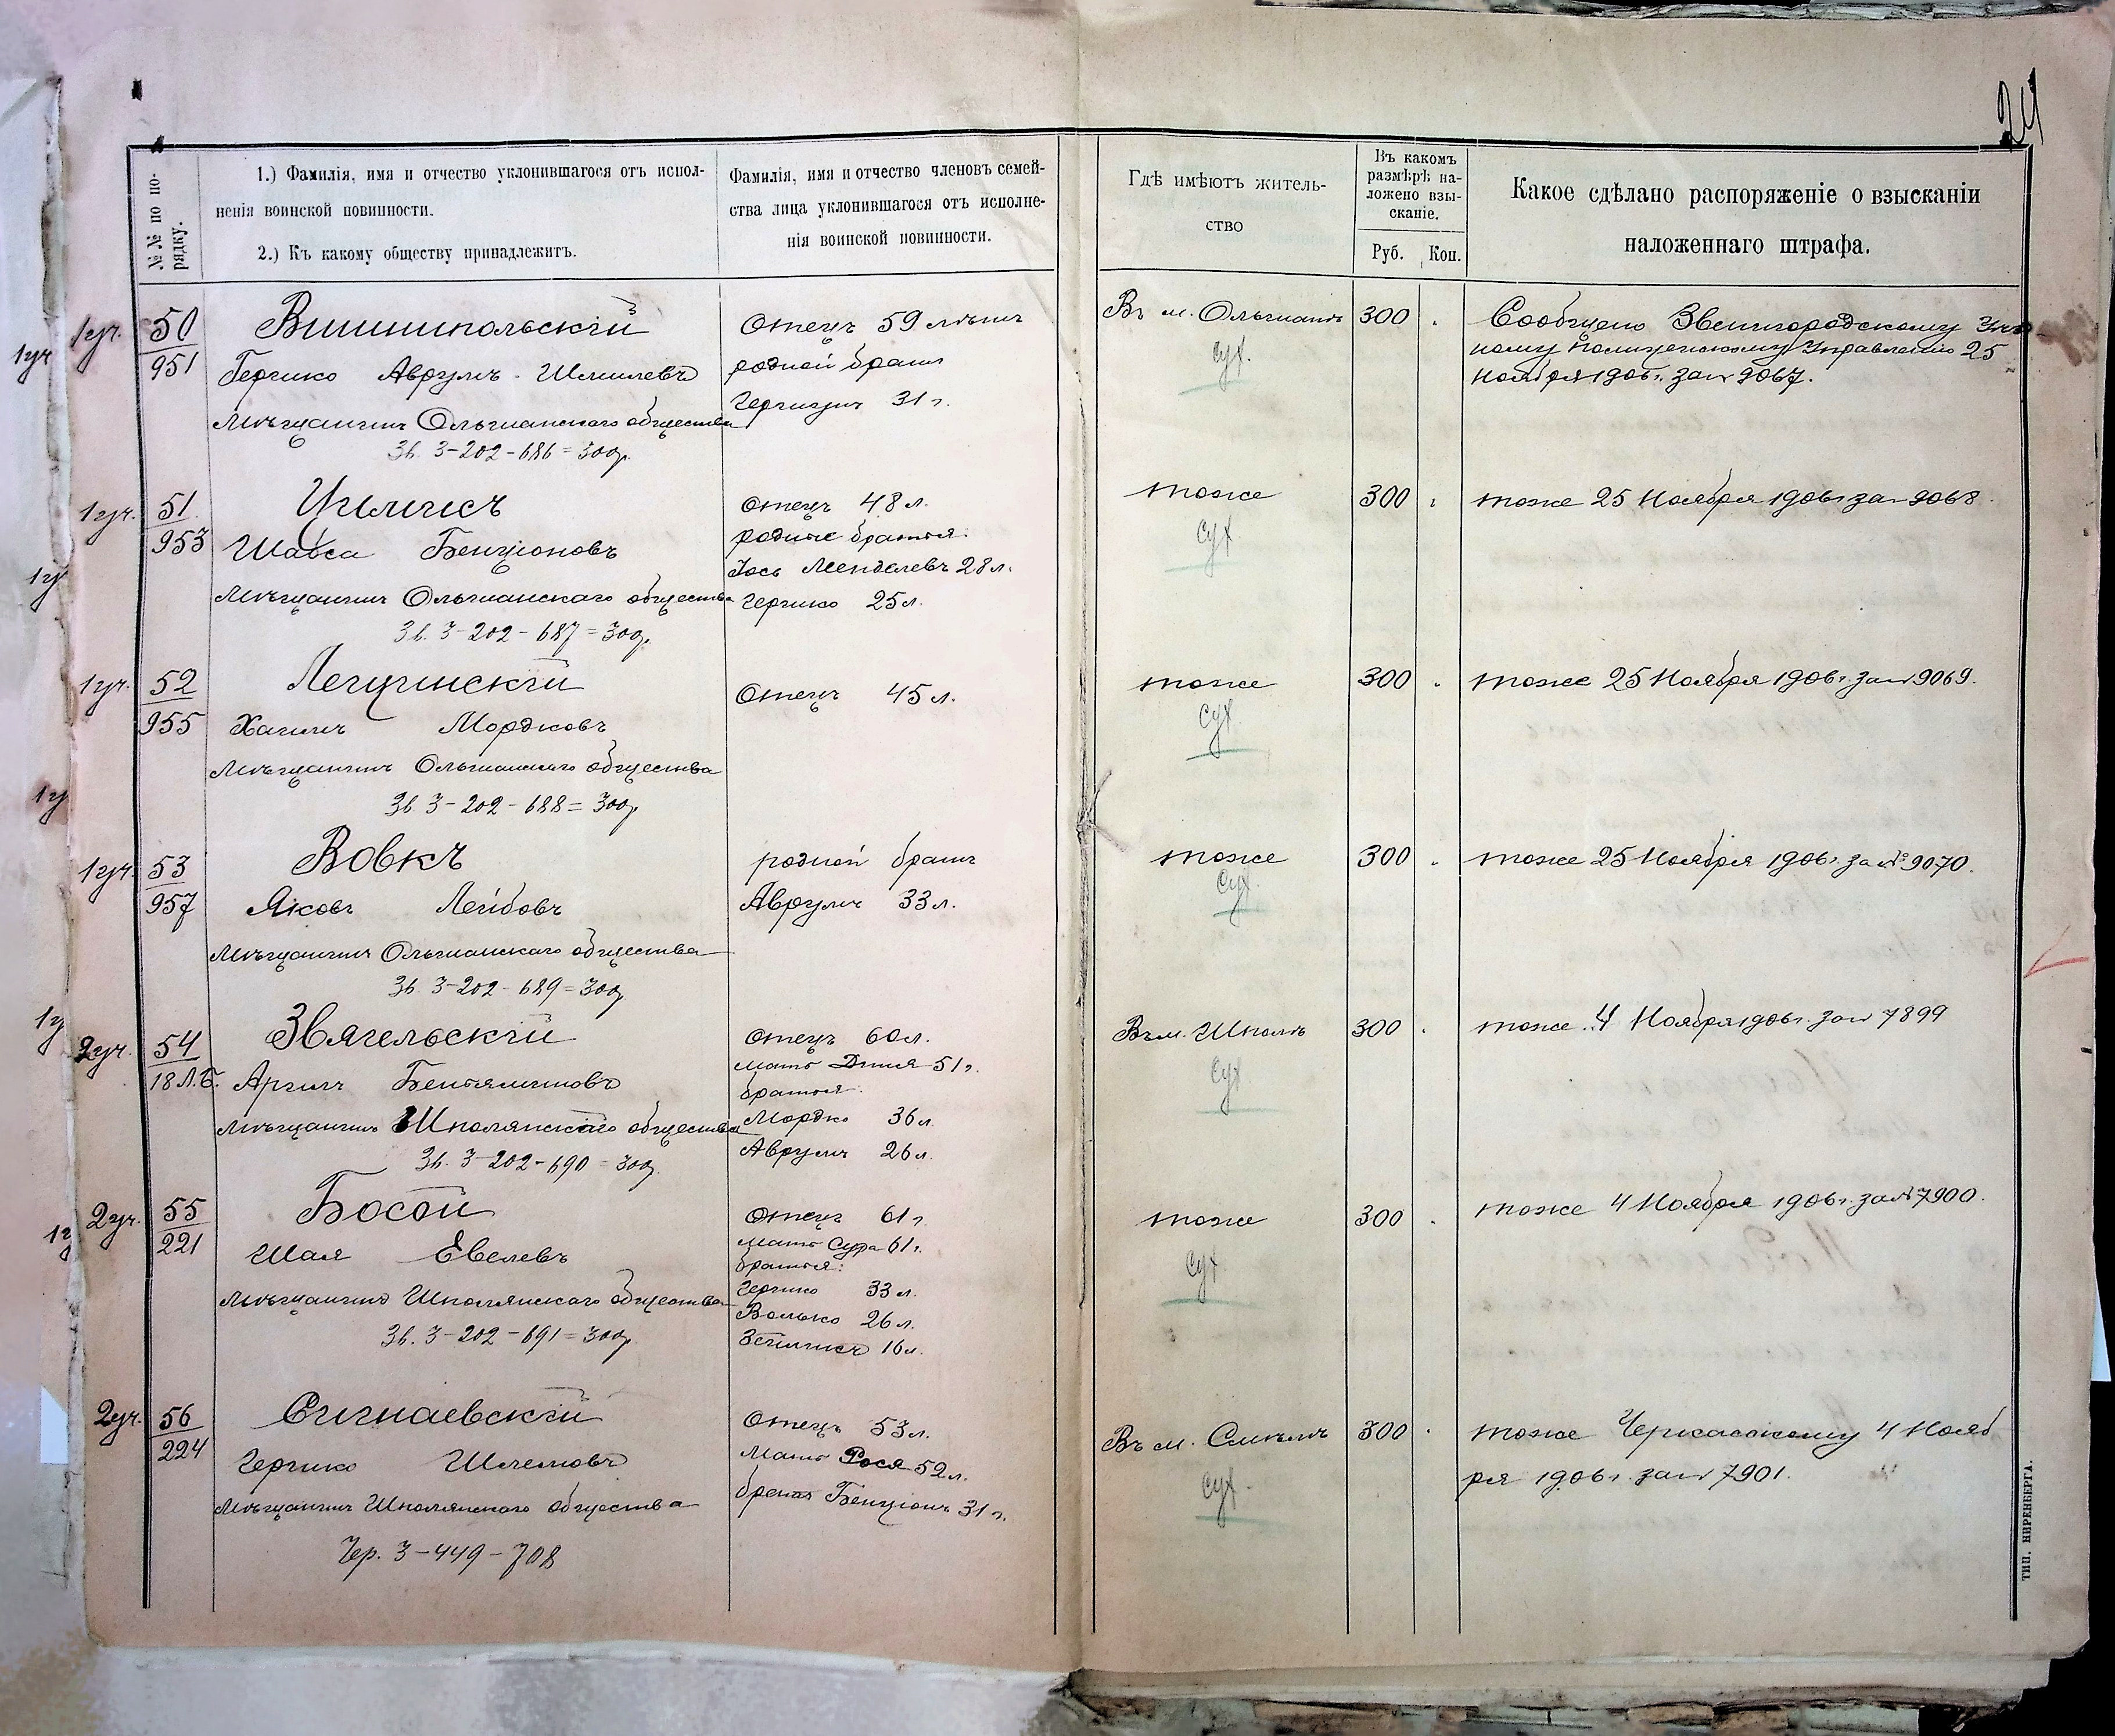 24
№ № по по-
рядку.
1.) Фамилія, имя и отчество уклонившагося отъ испол-
ненія воинской повинности.
2.) Къ какому обществу принадлежитъ.
Фамилія, имя и отчество членовъ семей-
ства лица уклонившагося отъ исполне-
нія воинской повинности.
Гдѣ имѣютъ житель-
ство
Въ какомъ
размѣрѣ на-
ложено взы-
сканіе.
Руб. Коп.
Какое сдѣлано распоряженіе о взысканіи
наложеннаго штрафа.
1уч
1уч. 50
951
Вишнипольскій
Гершко Аврумъ-Шмилевъ
Мѣщанинъ Ольшанскаго общества
Зв. 3-202-686=300р.
Отецъ 59 лѣтъ
родной братъ
31 г.
Въ м. Ольшанѣ
300
Сообщено Звенигородскому Уѣзд
ному Полицейскому Управленію 25
Ноября 1906 г. за № 9067.
1уч. 51
953
Шавса Бенціоновъ
Мѣщанинъ Ольшанскаго общества
Зв. 3-202-687=300р.
Отецъ 48 л.
родные братья:
Іось Мендалевъ 28 л.
Гершко 25 л.
тоже
300
тоже 25 Ноября 1906 г. за № 9068
1у
1уч. 52
955
Хаимъ Мордковъ
Мѣщанинъ Ольшанскаго общества
Зв. 3-202-688=300р
Отецъ 45 л.
тоже
300
тоже 25 Ноября 1906 г. за № 9069.
1у
1уч. 53
957
Вовкъ
Яковъ Лейбовъ
Мѣщанинъ Ольшанскаго общества
Зв. 3-202-689=300р
родной братъ
Аврумъ 33 л.
тоже
300
тоже 25 Ноября 1906 г. за № 9070.
1у
2уч. 54
18 Л.Б.
Звягельскій
Аронъ Беньяминовъ
Мѣщанинъ Шполянскаго общества
Зв. 3-202-690=300р.
Отецъ 60 л.
мать 51 г.
братья:
Мордко 36 л.
Аврумъ 26 л.
Въ м. Шполѣ
300
тоже 4 Ноября 1906 г. за № 7899
2уч. 55
221
Босой
Шая Евелевъ
Мѣщанинъ Шполянскаго общества
Зв. 3-202-691=300р
Отецъ 61 г.
Мать Сура 61 г.
братья:
Гершко 33 л.
Волько 26 л.
16 л.
тоже
300
тоже 4 Ноября 1906 г. за № 7900.
2уч. 56
224
Сигнаевскій
Гершко Шлемовъ
Мѣщанинъ Шполянскаго общества
Чер. 3-449-708
Отецъ 53 л.
Мать Рося 52 л.
братъ Бенціонъ 31 г.
Въ м. Смѣлѣ
300
тоже Черкасскому 4 Нояб
ря 1906 г. за № 7901.
ТИП. НИРЕНБЕРГА.